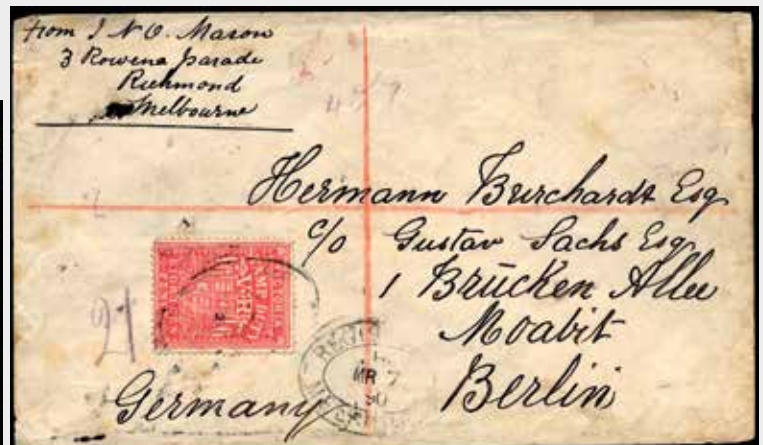 from J N O. Mason
3 Rowena Parade
Richmond
Melbourne
Hermann Burchardt Esq
c/o Gustav Sachs Esq
1 Brücken Allee
Moabit
Berlin
Germany
21
MR 7
90